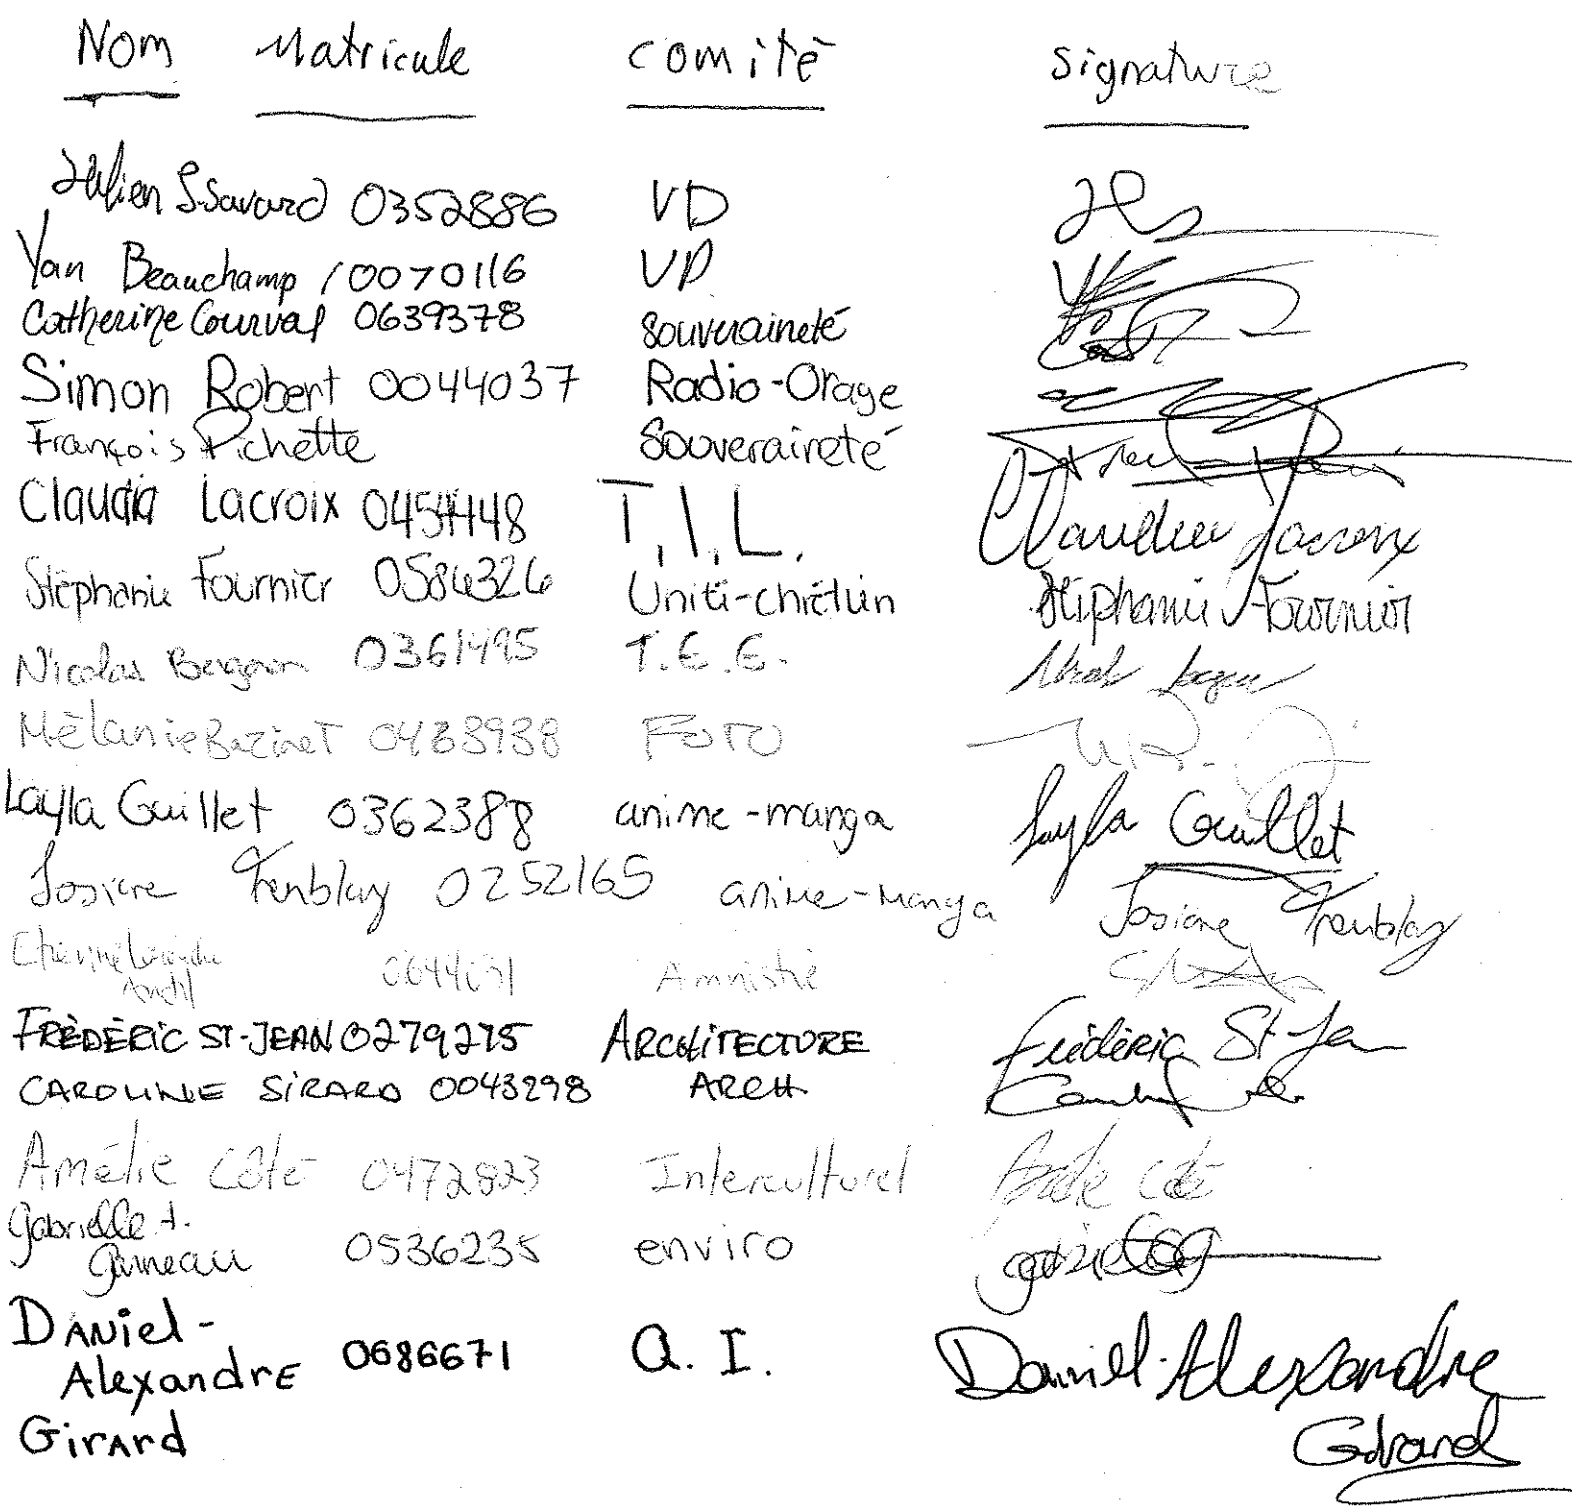 Nom Matricule Comité Signature
Julien S.Savard 0352886 VD
Yan Beauchamp 10070116 VD
Catherine Courval 0639378 Souveraineté
Simon Robert 0044037 Radio-Orage
François Pichette Souveraineté
Claudia Lacroix 0454448 T.I.L. Claudia Lacroix
Stéphanie Fournier 0584326 Unité-chrétien Stéphanie Fournier
Nicolas 0361495 T.E.E.
Mélanie Bazinet 0433938 FOTO
Layla Guillet 0362388 anime-manga Layla Guillet
Josiane Tremblay 0252165 anime-manga Josiane Tremblay
Amnistie
FRÉDÉRIC ST-JEAN 0279275 ARCHITECTURE Frédéric St-Jean
CAROLINE SIRARD 0043298 ARCH.
Amélie Côté 0472823 Interculturel Amélie Côté
Gabrielle t.
Garneau 0536235 enviro
DANiel-
AlexandrE 0686671 Q.I. Daniel-Alexandre
GirArd Girard